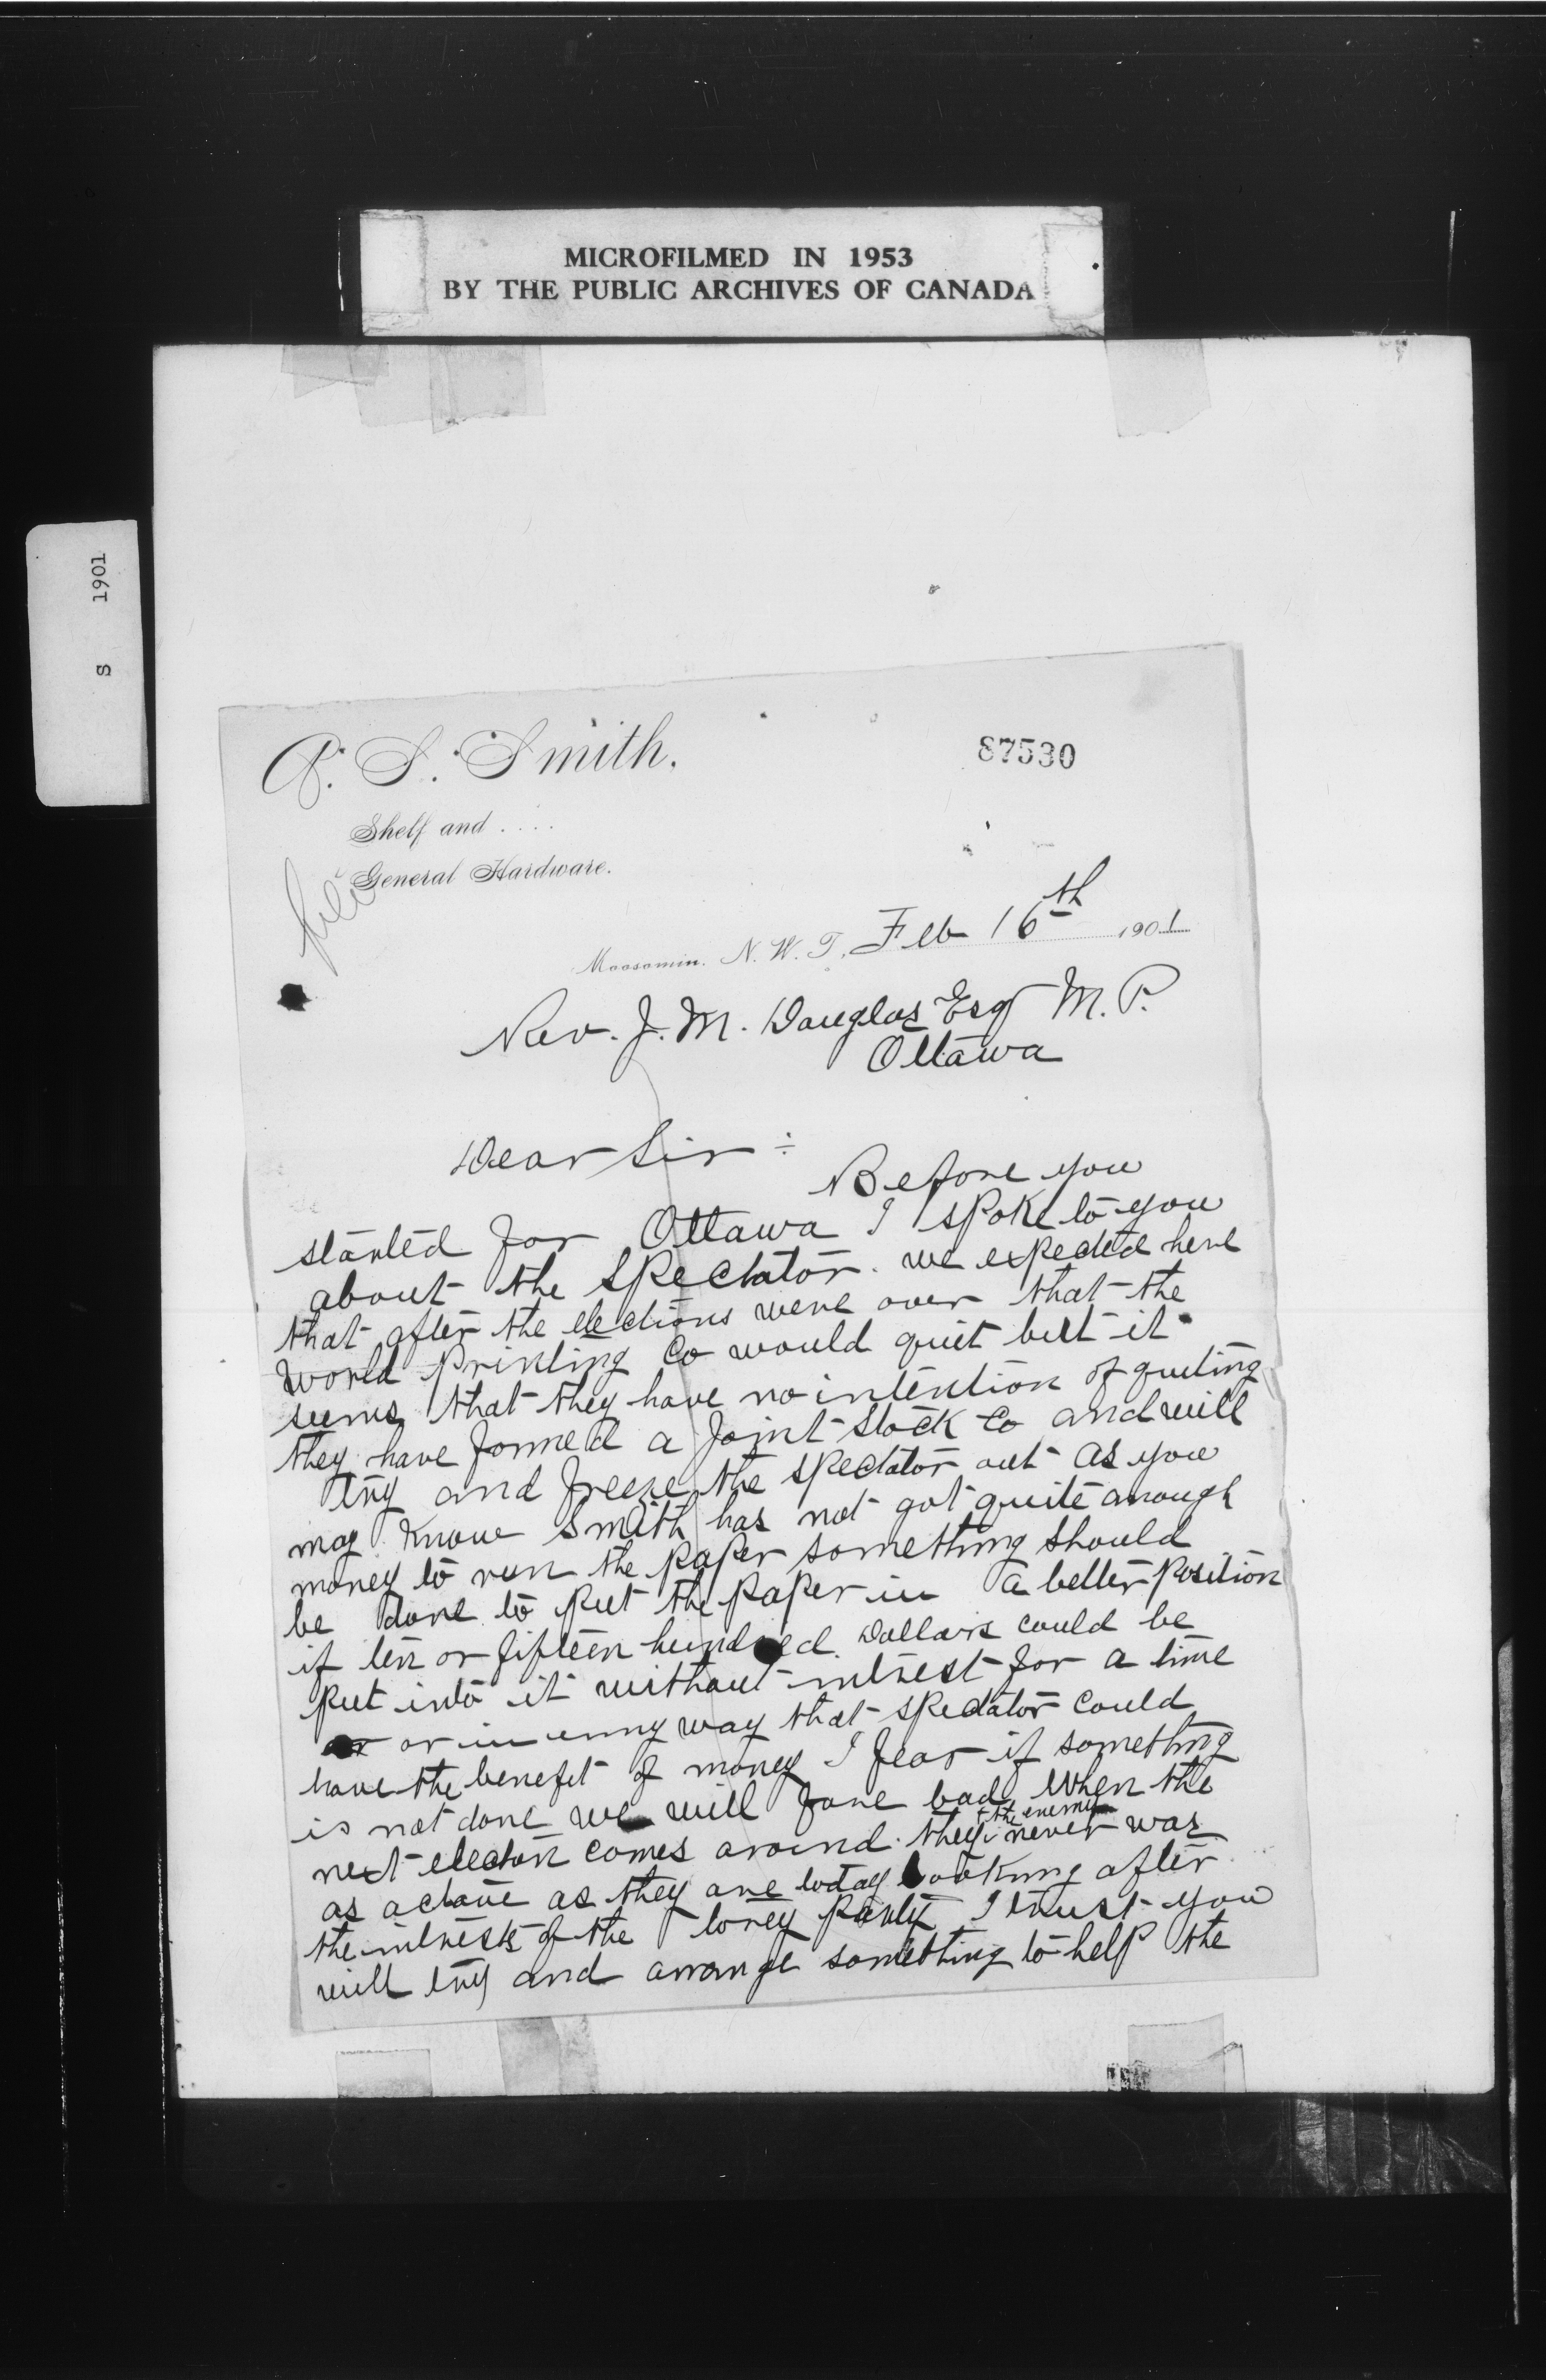 MICROFILMED IN 1953
BY THE PUBLIC ARCHIVES OF CANADA
S 1901
P. S. Smith.
87530
Shelf and ....
General Hardware.
file
Moosomin. N. W. T. Feb 16th 1901
Rev. J. M. Douglas Esq M. P.
Ottawa
Dear Sir ÷
Before you
started for Ottawa I spoke to you
about the Spectator. we expected here
that after the elections were over that the
World Printing Co would quit but it
seems that they have no intention of quiting
they have formed a Joint Stock Co and will
try and freeze the Spectator out as you
may know Smith has not got quite anough
money to run the paper something should
be done to put the paper in a better position
if ten or fifteen hundred Dollars could be
put into it without intrest for a time
or in enny way that spectator could
have the benefit of money I fear if something
is not done we will fare bad when the
next election comes around. they the enemy never was
as active as they are today looking after
the intrests of the torey party I trust you
will try and arrange something to help the